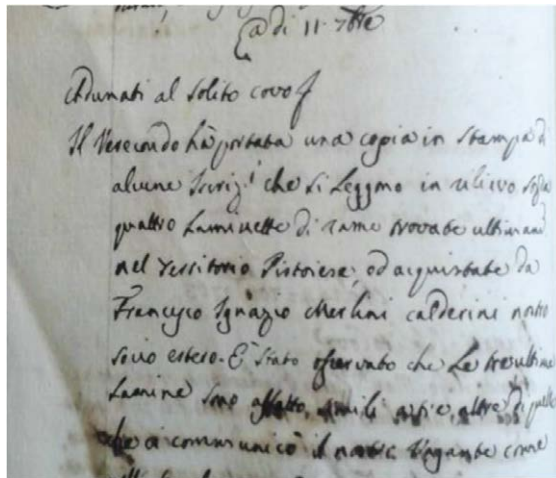 a di 11. 7bre
Adunati al solito covo
Il Verecondo hà portata una copia in stampa di
alcune Iscriz.i che si leggono in rilievo sopra
quattro Laminette di rame trovate ultimam
nel Territorio Pistoiese, ed acquistate da
Francesco Ignazio Merlini calderini nostro
socio estero. È stato osservato che le tre ultime
Lamine sono affatto simili altre di quelle
che ci communicò il nostro Vagante come